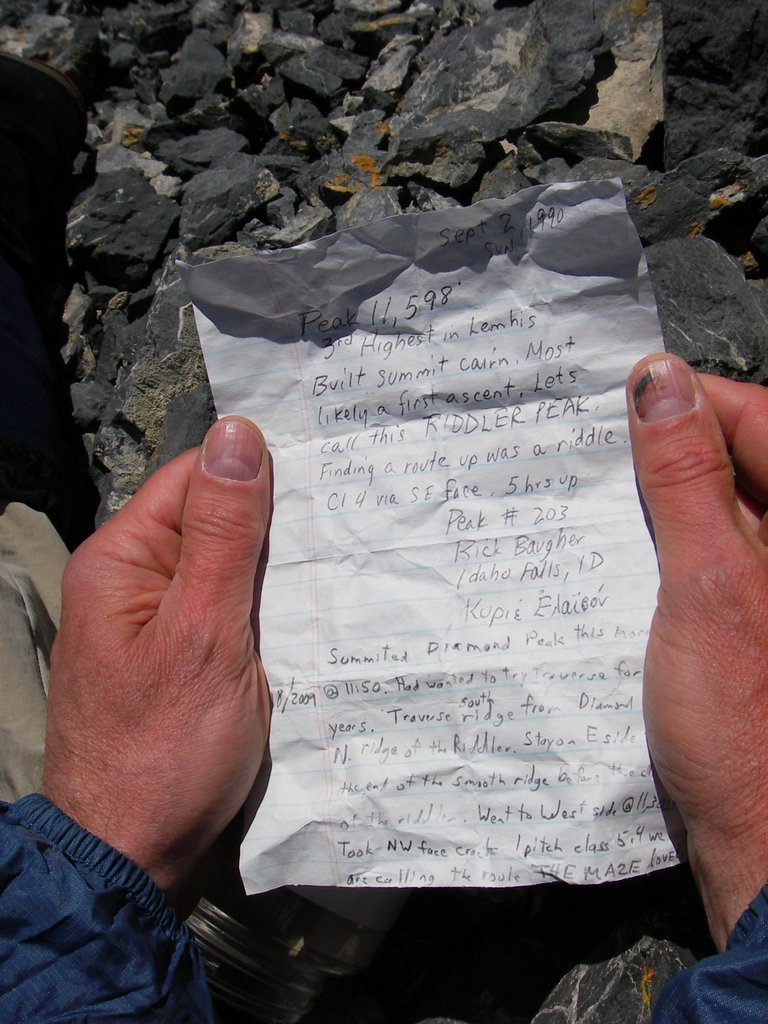 Sept 2, 1990
SUN,
Peak 11,598'
3rd Highest in Lemhis
Built summit cairn. Most
likely a first ascent. Lets
call this RIDDLER PEAK.
Finding a route up was a riddle.
Cl 4 via SE face. 5 hrs up
Peak # 203
Rick Baugher
Idaho Falls, ID
Κυριε Ελαισόν
Summited Diamond Peak this
8/2009 @ 11:50. Had wanted to try Traverse for
years. Traverse south ridge from Diamond
N. ridge of the Riddler. Stay on E side
the end of the smooth ridge before the
of the riddler. Went to West side @
Took NW face crack 1 pitch class 5.4 we
are calling the route THE MAZE